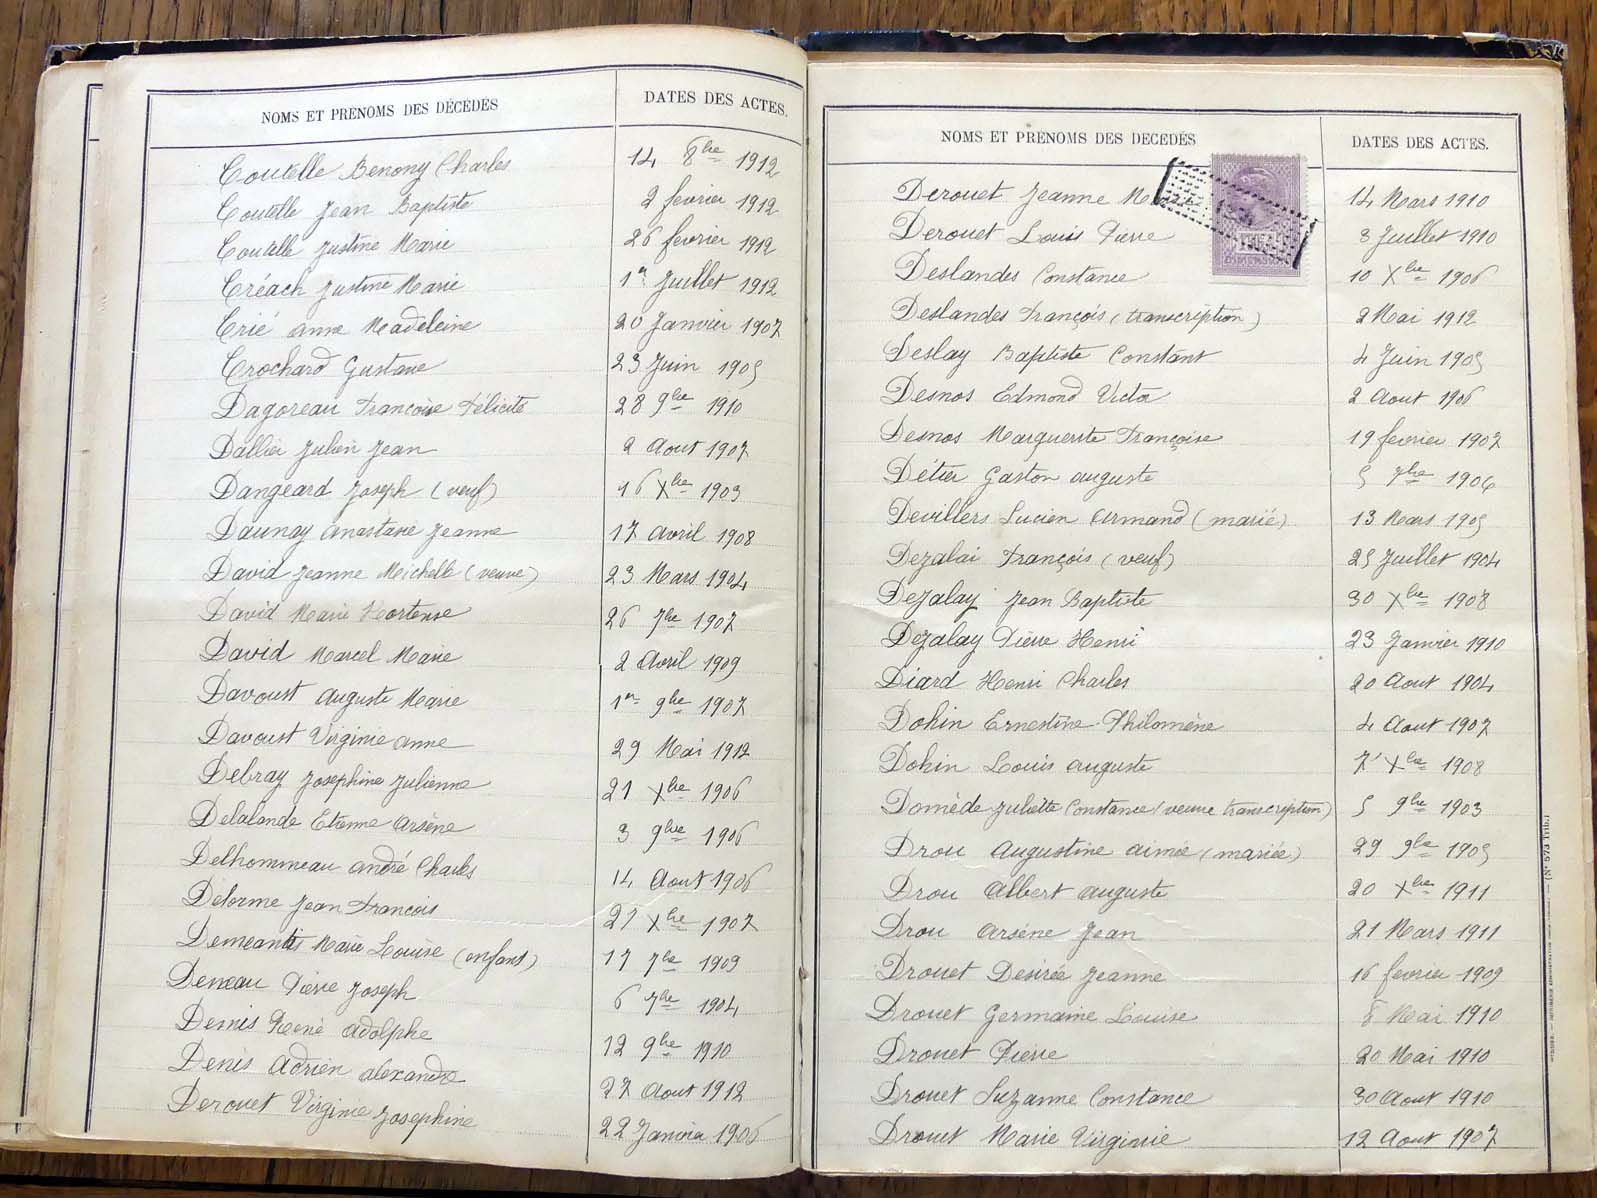 NOMS ET PRENOMS DES DÉCÉDÉS DATES DES ACTES.
Coutelle Benony Charles 14 8bre 1912
Coutelle Jean Baptiste 2 fevrier 1912
Coutelle Justine Marie 26 fevrier 1912
Créach Justine Marie 1er Juillet 1912
Crié anne Madeleine 20 Janvier 1907
Crochard Gustave 23 Juin 1905
Dagoreau Françoise Félicité 28 9bre 1910
Dallier Julien Jean 2 Aout 1907
Dangeard Joseph (veuf) 16 Xbre 1903
Daunay Anastasie Jeanne 17 Avril 1908
David Jeanne Michelle (veuve) 23 Mars 1904
David Marie Hortense 26 7bre 1907
David Marcel Marie 2 Avril 1909
Davoust Auguste Marie 1er 9bre 1907
Davoust Virginie anne 29 Mai 1912
Debray Josephine Julienne 21 Xbre 1906
Delalande Etienne Arsène 3 9bre 1906
Delhommeau andré Charles 14 Aout 1906
Delorme Jean François 21 Xbre 1907
Marie Louise (enfant) 17 7bre 1909
Deneau Pierre Joseph 6 7bre 1904
Denis René Adolphe 12 9bre 1910
Denis Adrien alexandre 27 Aout 1912
Derouet Virginie Josephine 22 Janvier 1906
NOMS ET PRENOMS DES DECEDÉS DATES DES ACTES.
Derouet Jeanne 14 Mars 1910
Derouet Louis Pierre 8 Juillet 1910
Deslandes Constance 10 Xbre 1906
Deslandes François (transcription) 2 Mai 1912
Deslay Baptiste Constant 4 Juin 1905
Desnos Edmond Victor 2 Aout 1906
Desnos Marguerite Françoise 19 fevrier 1907
Détier Gaston auguste 5 7bre 1906
Devillers Lucien Armand (marié) 13 Mars 1905
Dezalai François (veuf) 25 Juillet 1904
Dezalay Jean Baptiste 30 Xbre 1908
Dezalay Pierre Henri 23 Janvier 1910
Diard Henri Charles 20 Aout 1904
Dohin Ernestine Philomène 4 Aout 1907
Dohin Louis auguste 7 Xbre 1908
Domède Juliette Constance (veuve transcription) 5 9bre 1903
Drou Augustine aimée (mariée) 29 9bre 1905
Drou Albert auguste 20 Xbre 1911
Drou Arsène Jean 21 Mars 1911
Drouet Desirée Jeanne 16 fevrier 1909
Drouet Germaine Louise 8 Mai 1910
Drouet Pierre 20 Mai 1910
Drouet Suzanne Constance 30 Aout 1910
Drouet Marie Virginie 12 Aout 1907
(N° 573 Trib.)